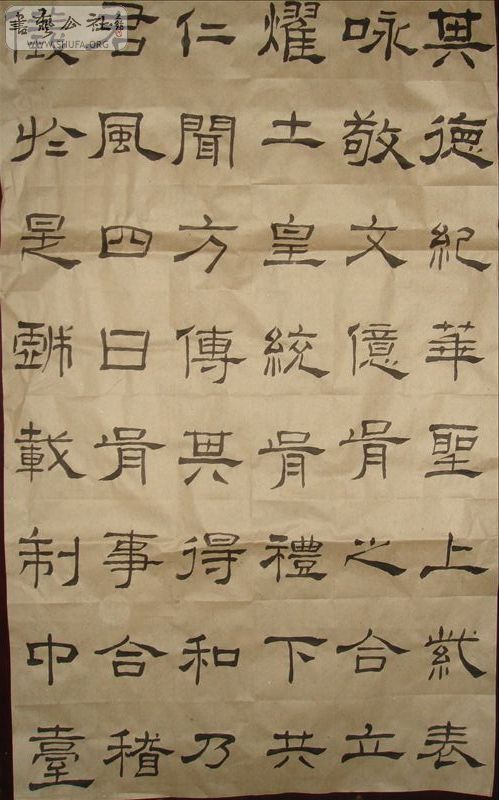 其德紀華聖上表
咏敬文億胥之合立
耀土皇統胥禮下共
仁聞方傳其得和乃
君風四曰胥事合稽
於是載制巾臺
書藝公社
WWW.SHUFA.ORG